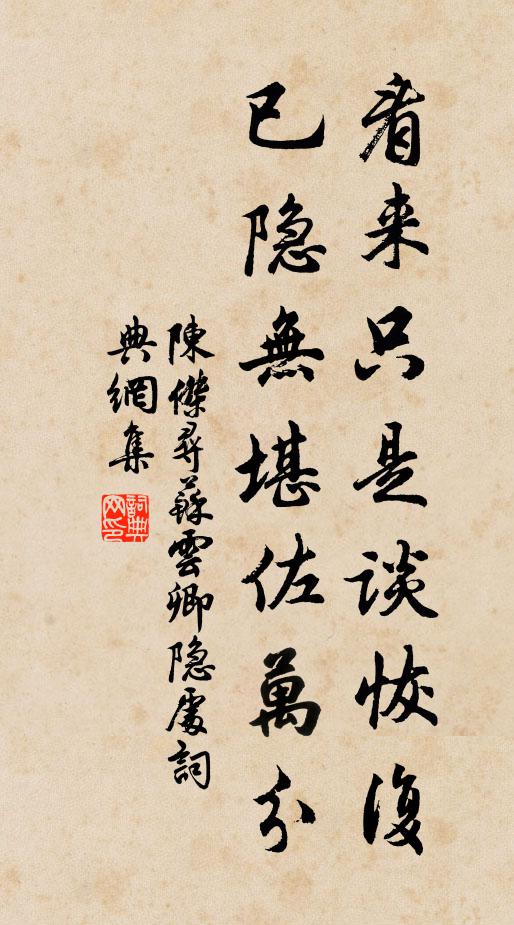 看来只是談恢復
已隐無堪佐萬分
陳傑尋蘇雲卿隐處詞
典網集
詞典
网印